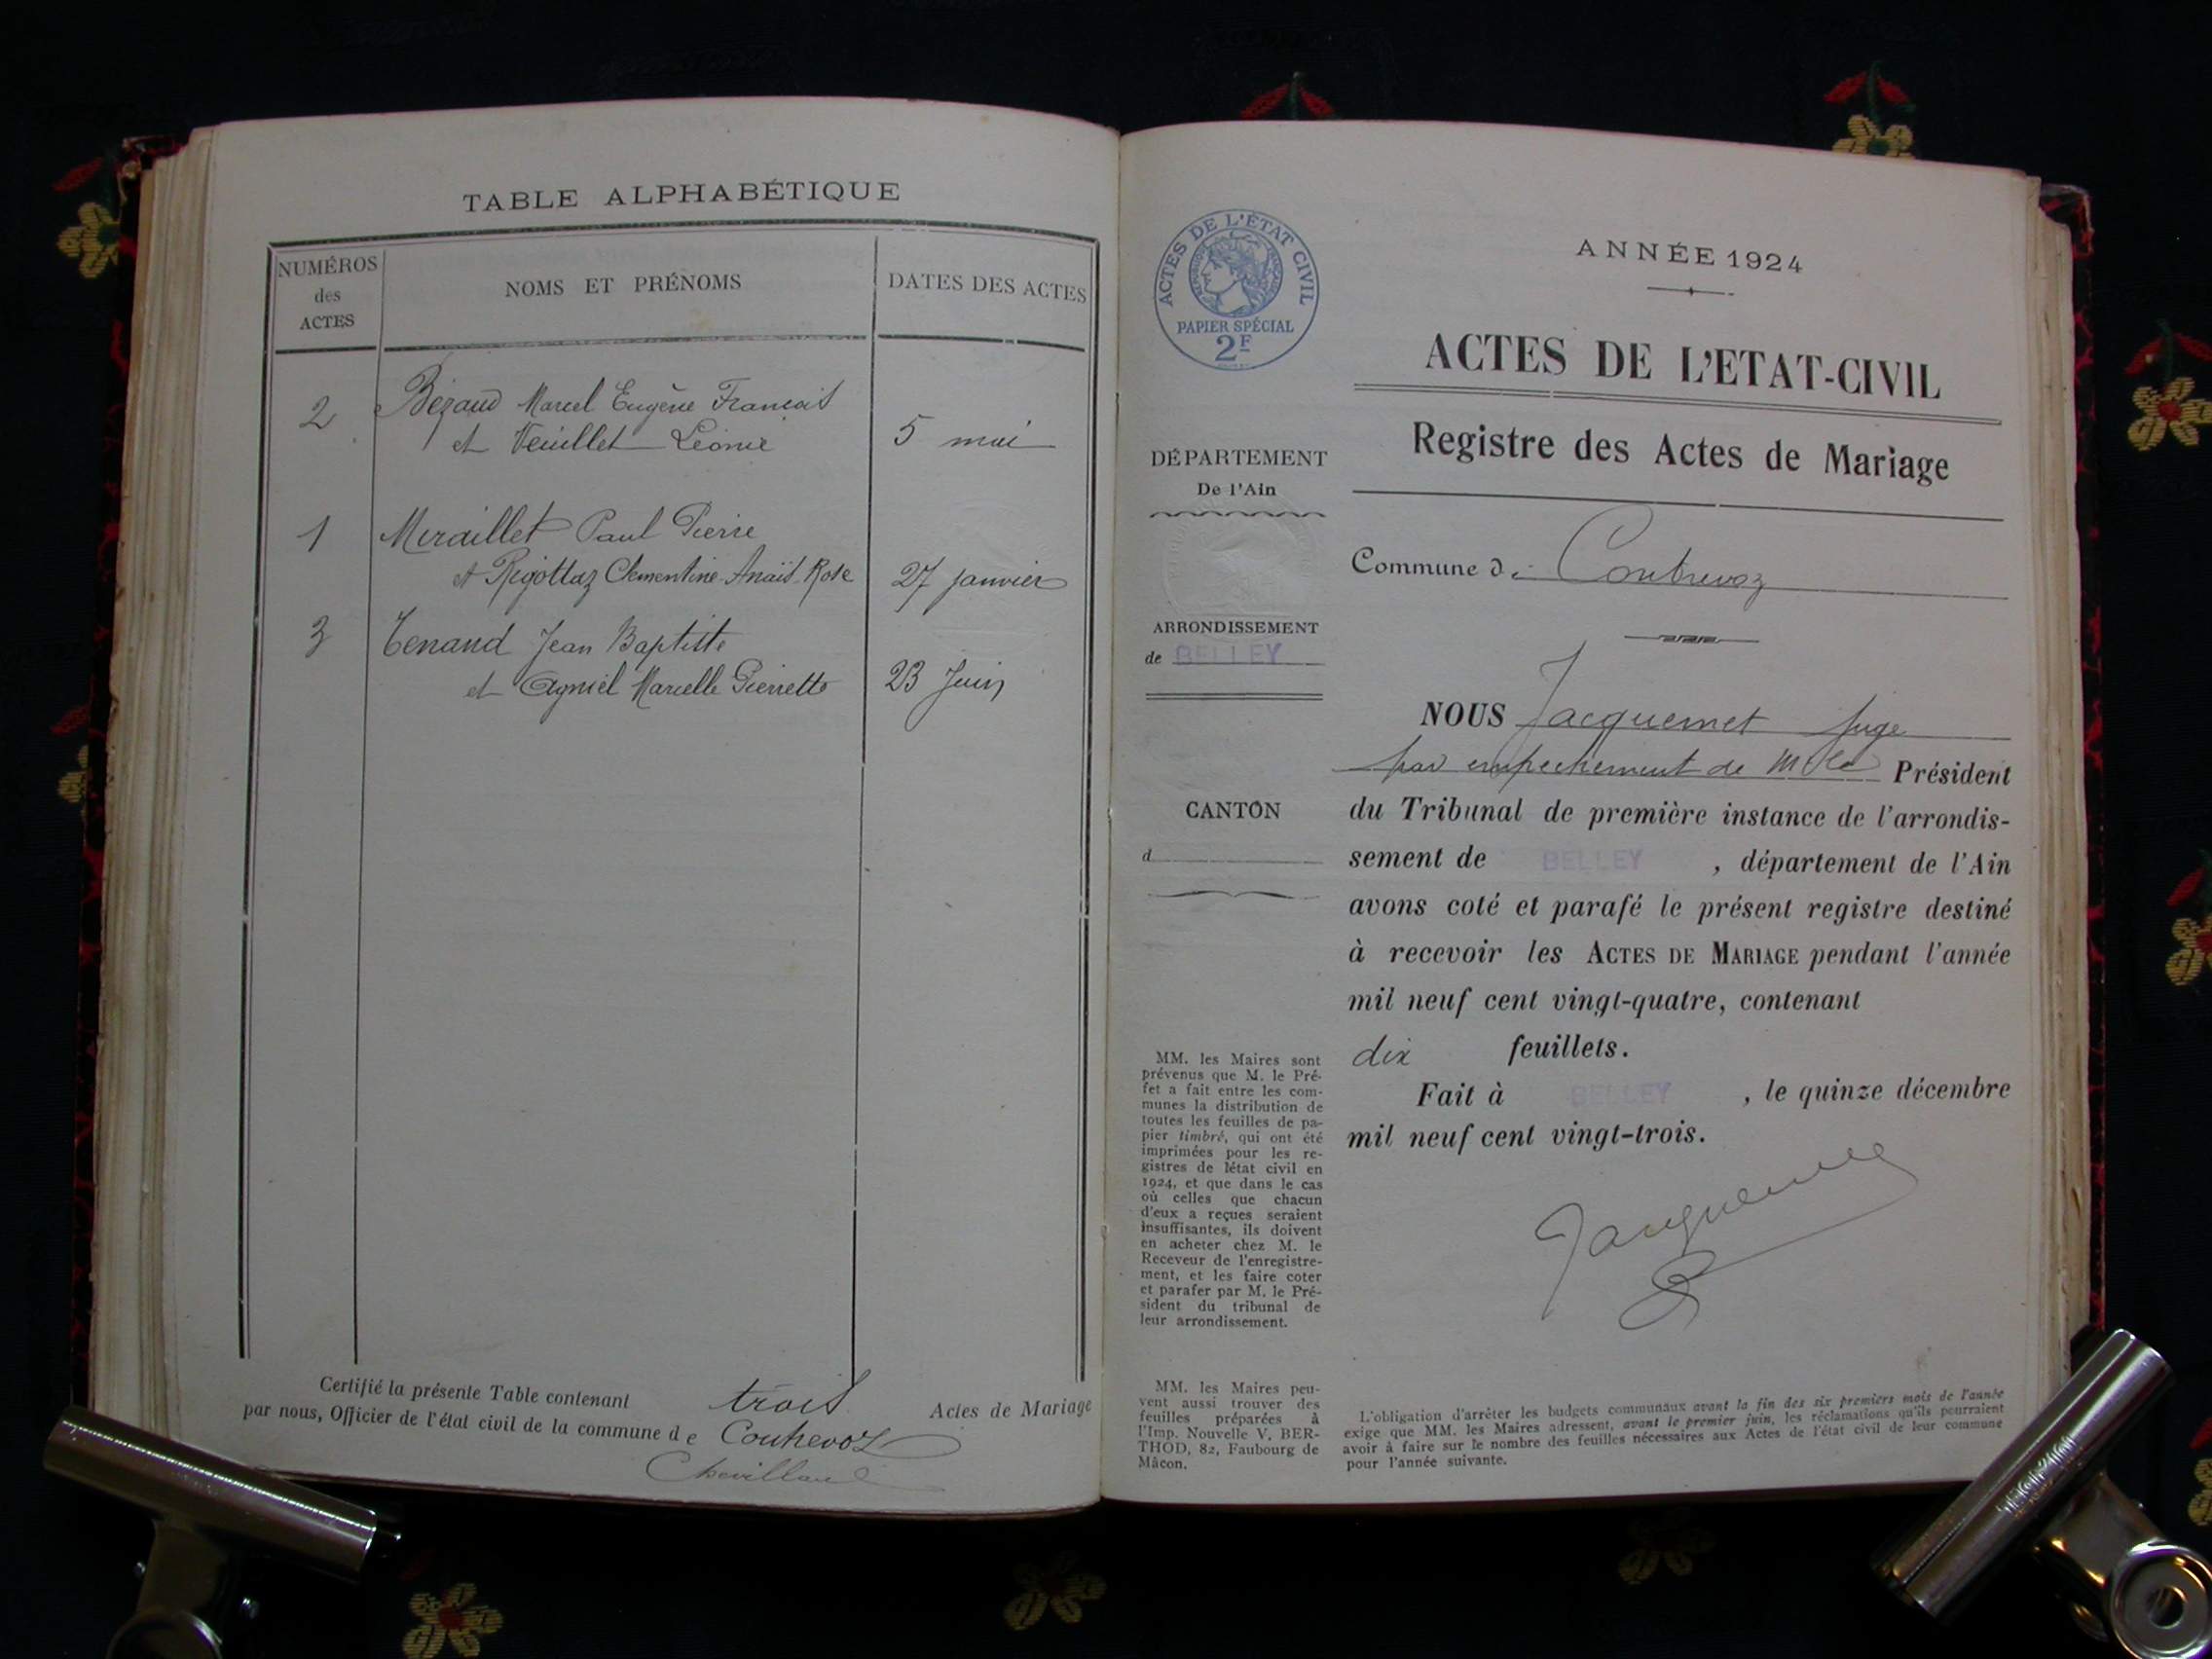 TABLE ALPHABÉTIQUE
NUMÉROS
des
ACTES
NOMS ET PRÉNOMS
DATES DES ACTES
2
Bézaud Marcel Eugène François
et Veuillet Léonie
5 mai
1
Miraillet Paul Pierre
et Rigottaz Clementine Anaïs Rose
27 janvier
3
Tenand Jean Baptiste
et Agniel Marcelle Pierrette
23 Juin
Certifié la présente Table contenant trois Actes de Mariage
par nous, Officier de l'état civil de la commune de Contrevoz
ACTES DE L'ÉTAT CIVIL
RÉPUBLIQUE FRANÇAISE
PAPIER SPÉCIAL
2F
ANNÉE 1924
ACTES DE L'ETAT-CIVIL
Registre des Actes de Mariage
DÉPARTEMENT
De l'Ain
Commune de Contrevoz
ARRONDISSEMENT
de BELLEY
CANTON
d
NOUS Jacquemet Juge
par empechement de M le Président
du Tribunal de première instance de l'arrondis-
sement de BELLEY, département de l'Ain
avons coté et parafé le présent registre destiné
à recevoir les ACTES DE MARIAGE pendant l'année
mil neuf cent vingt-quatre, contenant
dix feuillets.
Fait à BELLEY, le quinze décembre
mil neuf cent vingt-trois.
Jacquemet
MM. les Maires sont
prévenus que M. le Pré-
fet a fait entre les com-
munes la distribution de
toutes les feuilles de pa-
pier timbré, qui ont été
imprimées pour les re-
gistres de l'état civil en
1924, et que dans le cas
où celles que chacun
d'eux a reçues seraient
insuffisantes, ils doivent
en acheter chez M. le
Receveur de l'enregistre-
ment, et les faire coter
et parafer par M. le Pré-
sident du tribunal de
leur arrondissement.
MM. les Maires peu-
vent aussi trouver des
feuilles préparées à
l'Imp. Nouvelle V. BER-
THOD, 82, Faubourg de
Mâcon.
L'obligation d'arrêter les budgets communaux avant la fin des six premiers mois de l'année
exige que MM. les Maires adressent, avant le premier juin, les réclamations qu'ils pourraient
avoir à faire sur le nombre des feuilles nécessaires aux Actes de l'état civil de leur commune
pour l'année suivante.